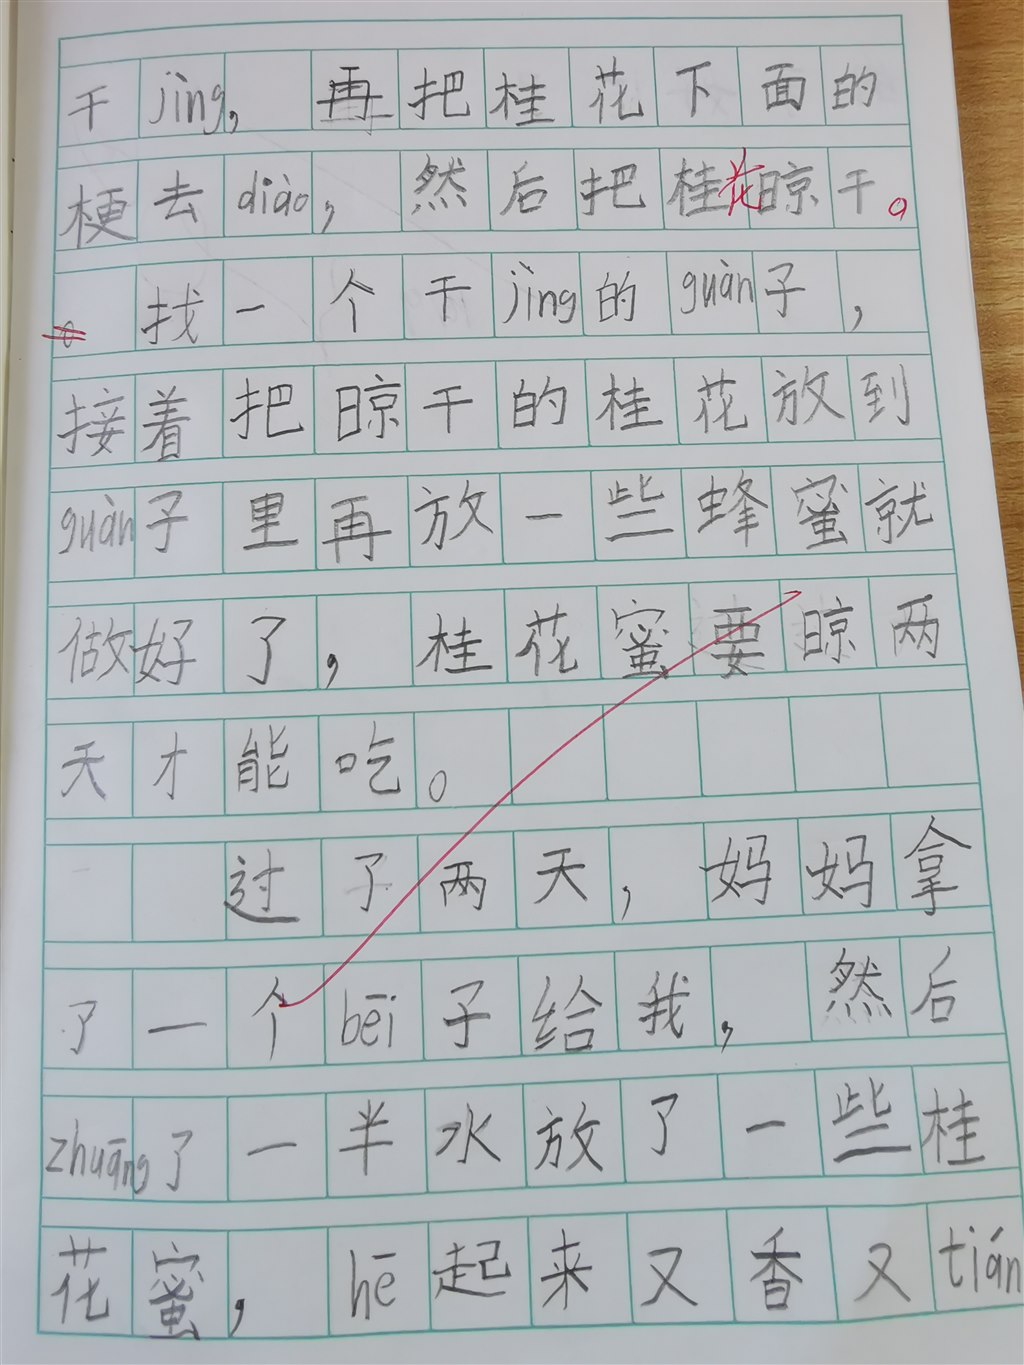 干jìng，再把桂花下面的
梗去diào，然后把桂花晾干。
找一个干jìng的guàn子，
接着把晾干的桂花放到
guàn子里再放一些蜂蜜就
做好了，桂花蜜要晾两
天才能吃。
过了两天，妈妈拿
了一个bēi子给我，然后
zhuāng了一半水放了一些桂
花蜜，hē起来又香又tián